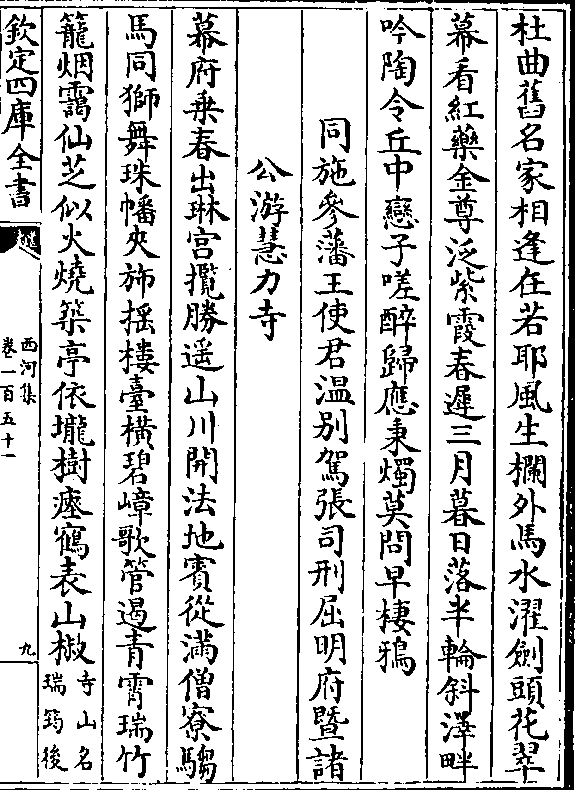 杜曲舊名家相逢在若耶風生欄外馬水濯劍頭花翠
幕看紅藥金尊泛紫霞春遲三月暮日落半輪斜澤畔
吟陶令丘中戀子嗟醉歸應秉燭莫問早棲鴉
同施參藩王使君温别駕張司刑屈明府暨諸
公游慧力寺
幕府乗春出琳宫攬勝遥山川開法地賓從滿僧寮騶
馬同獅舞珠幡夾斾揺樓臺横碧嶂歌管遏青霄瑞竹
籠烟靄仙芝似火燒築亭依壠樹瘞鶴表山椒寺山名瑞筠後
欽定四庫全書
西河集
卷一百五十一
九